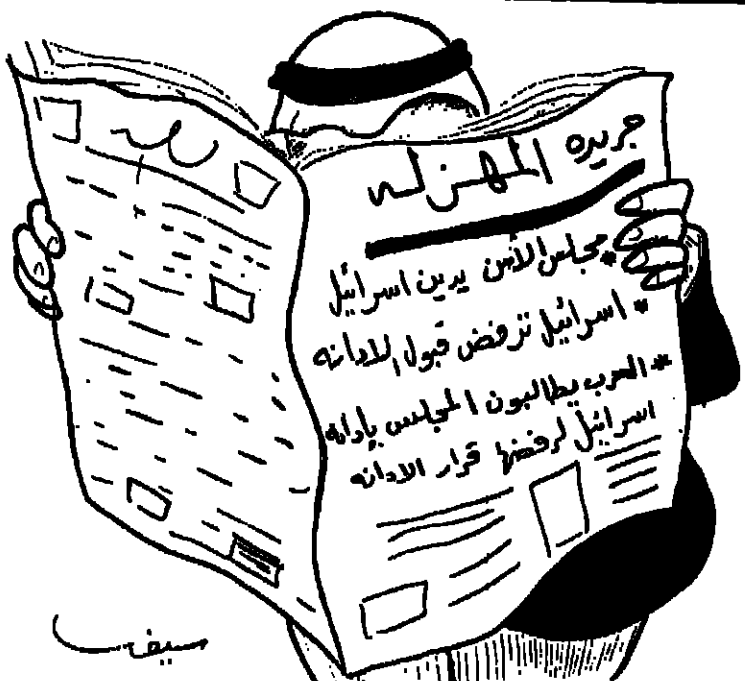 جريده المهزله
* مجلس الأمن يدين اسرائيل
* اسرائيل ترفض قبول الادانه
* العرب يطالبون المجلس بإدانه
اسرائيل لرفضها قرار الادانه
سيف